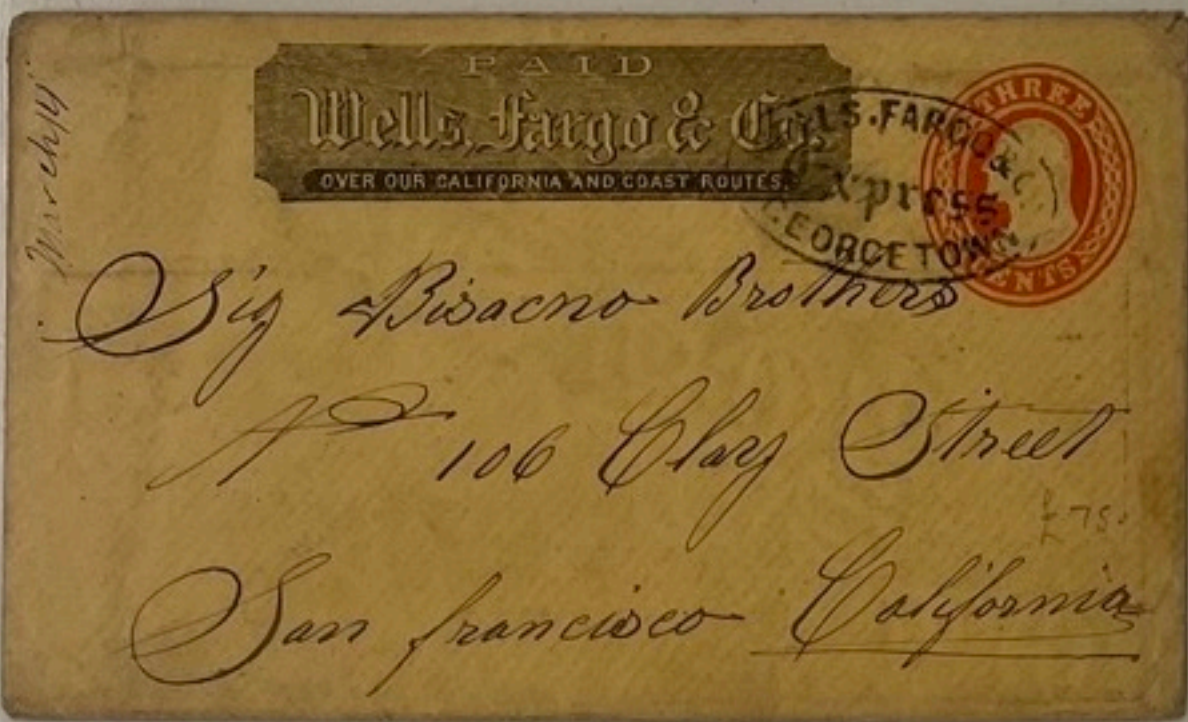 March 14
PAID
Wells, Fargo & Co.
OVER OUR CALIFORNIA AND COAST ROUTES.
THREE
CENTS
WELLS. FARGO & CO.
Express
GEORGETOWN
Sig Bisagno Brothers
No 106 Clay Street
£75.
San francisco California